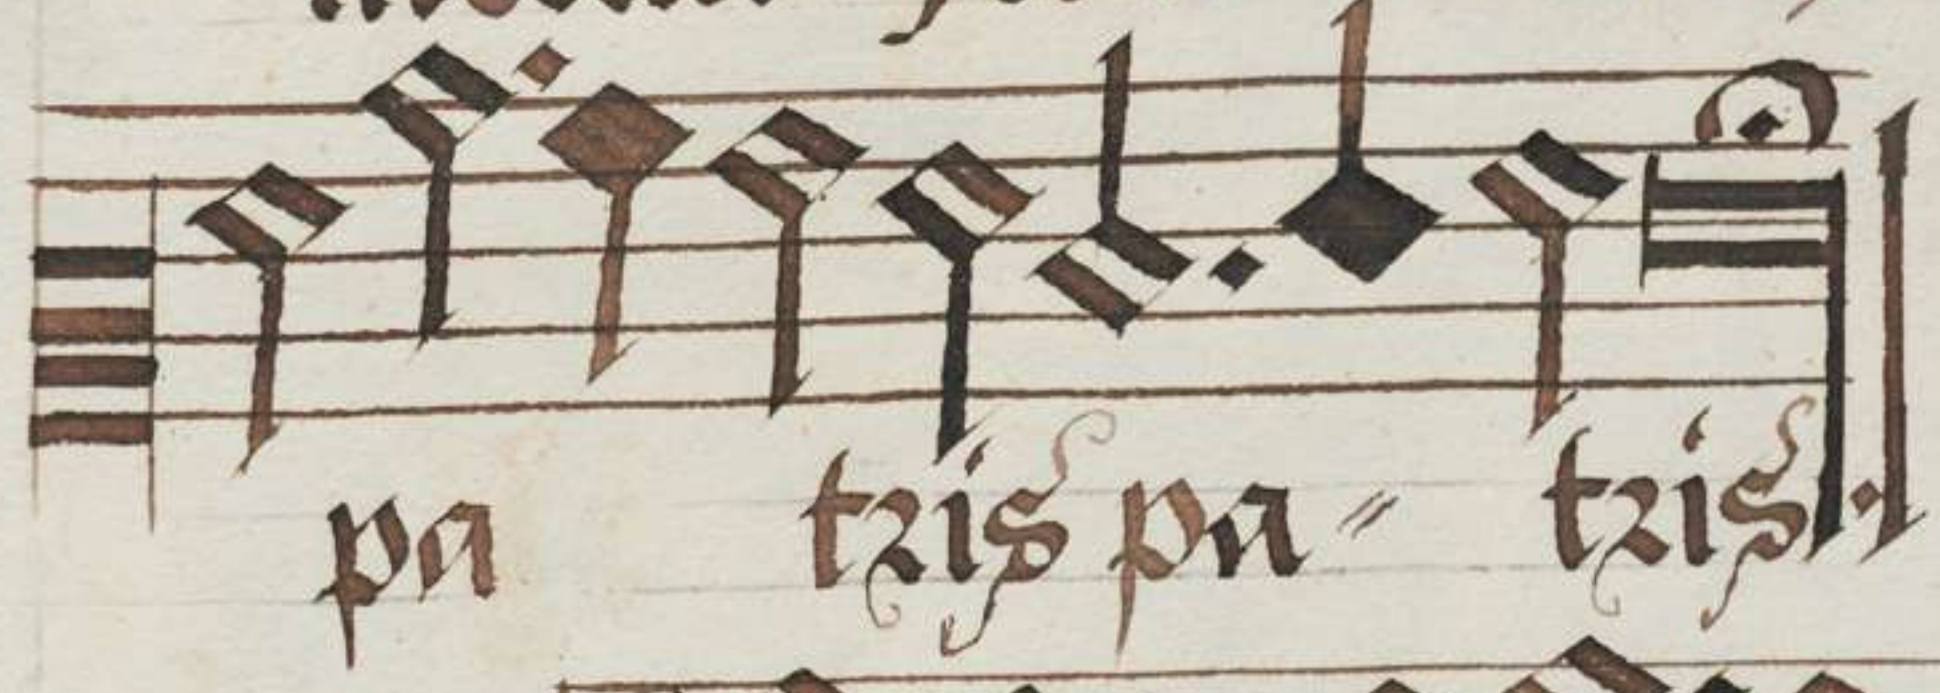 pa tris pa tris.